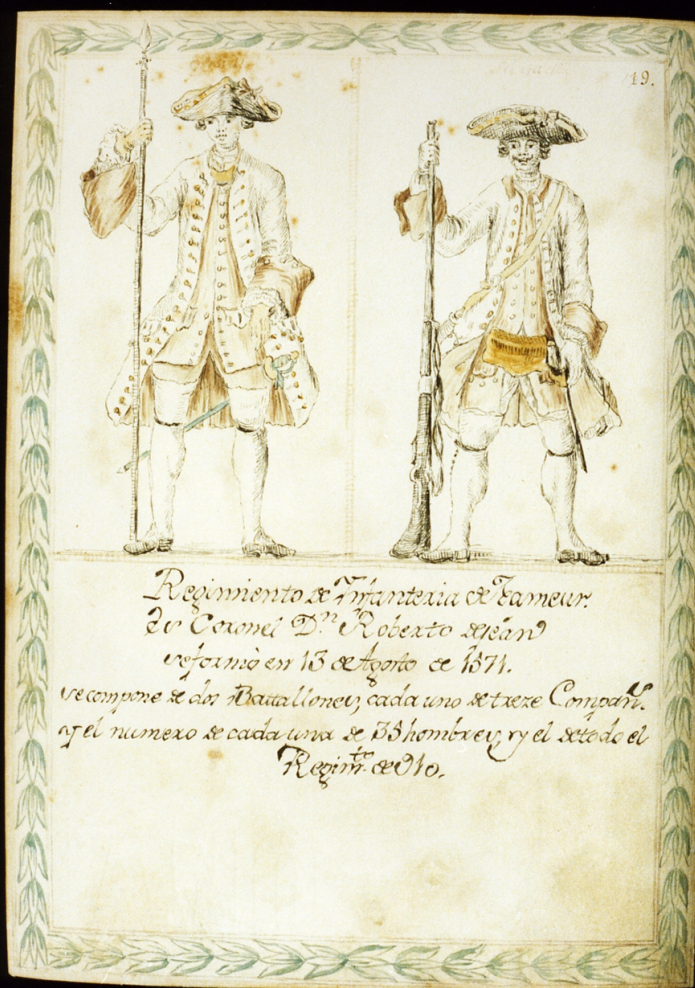 19.
Regimiento de Ynfanteria de Tameur.
Su Coronel D.n Roberto
se formò en 13 de Agosto de 1571.
se compone de dos Batallones, cada uno de treze Compañ.s
y el numero de cada una de 35 hombres, y el de todo el
Regim.to de 910.